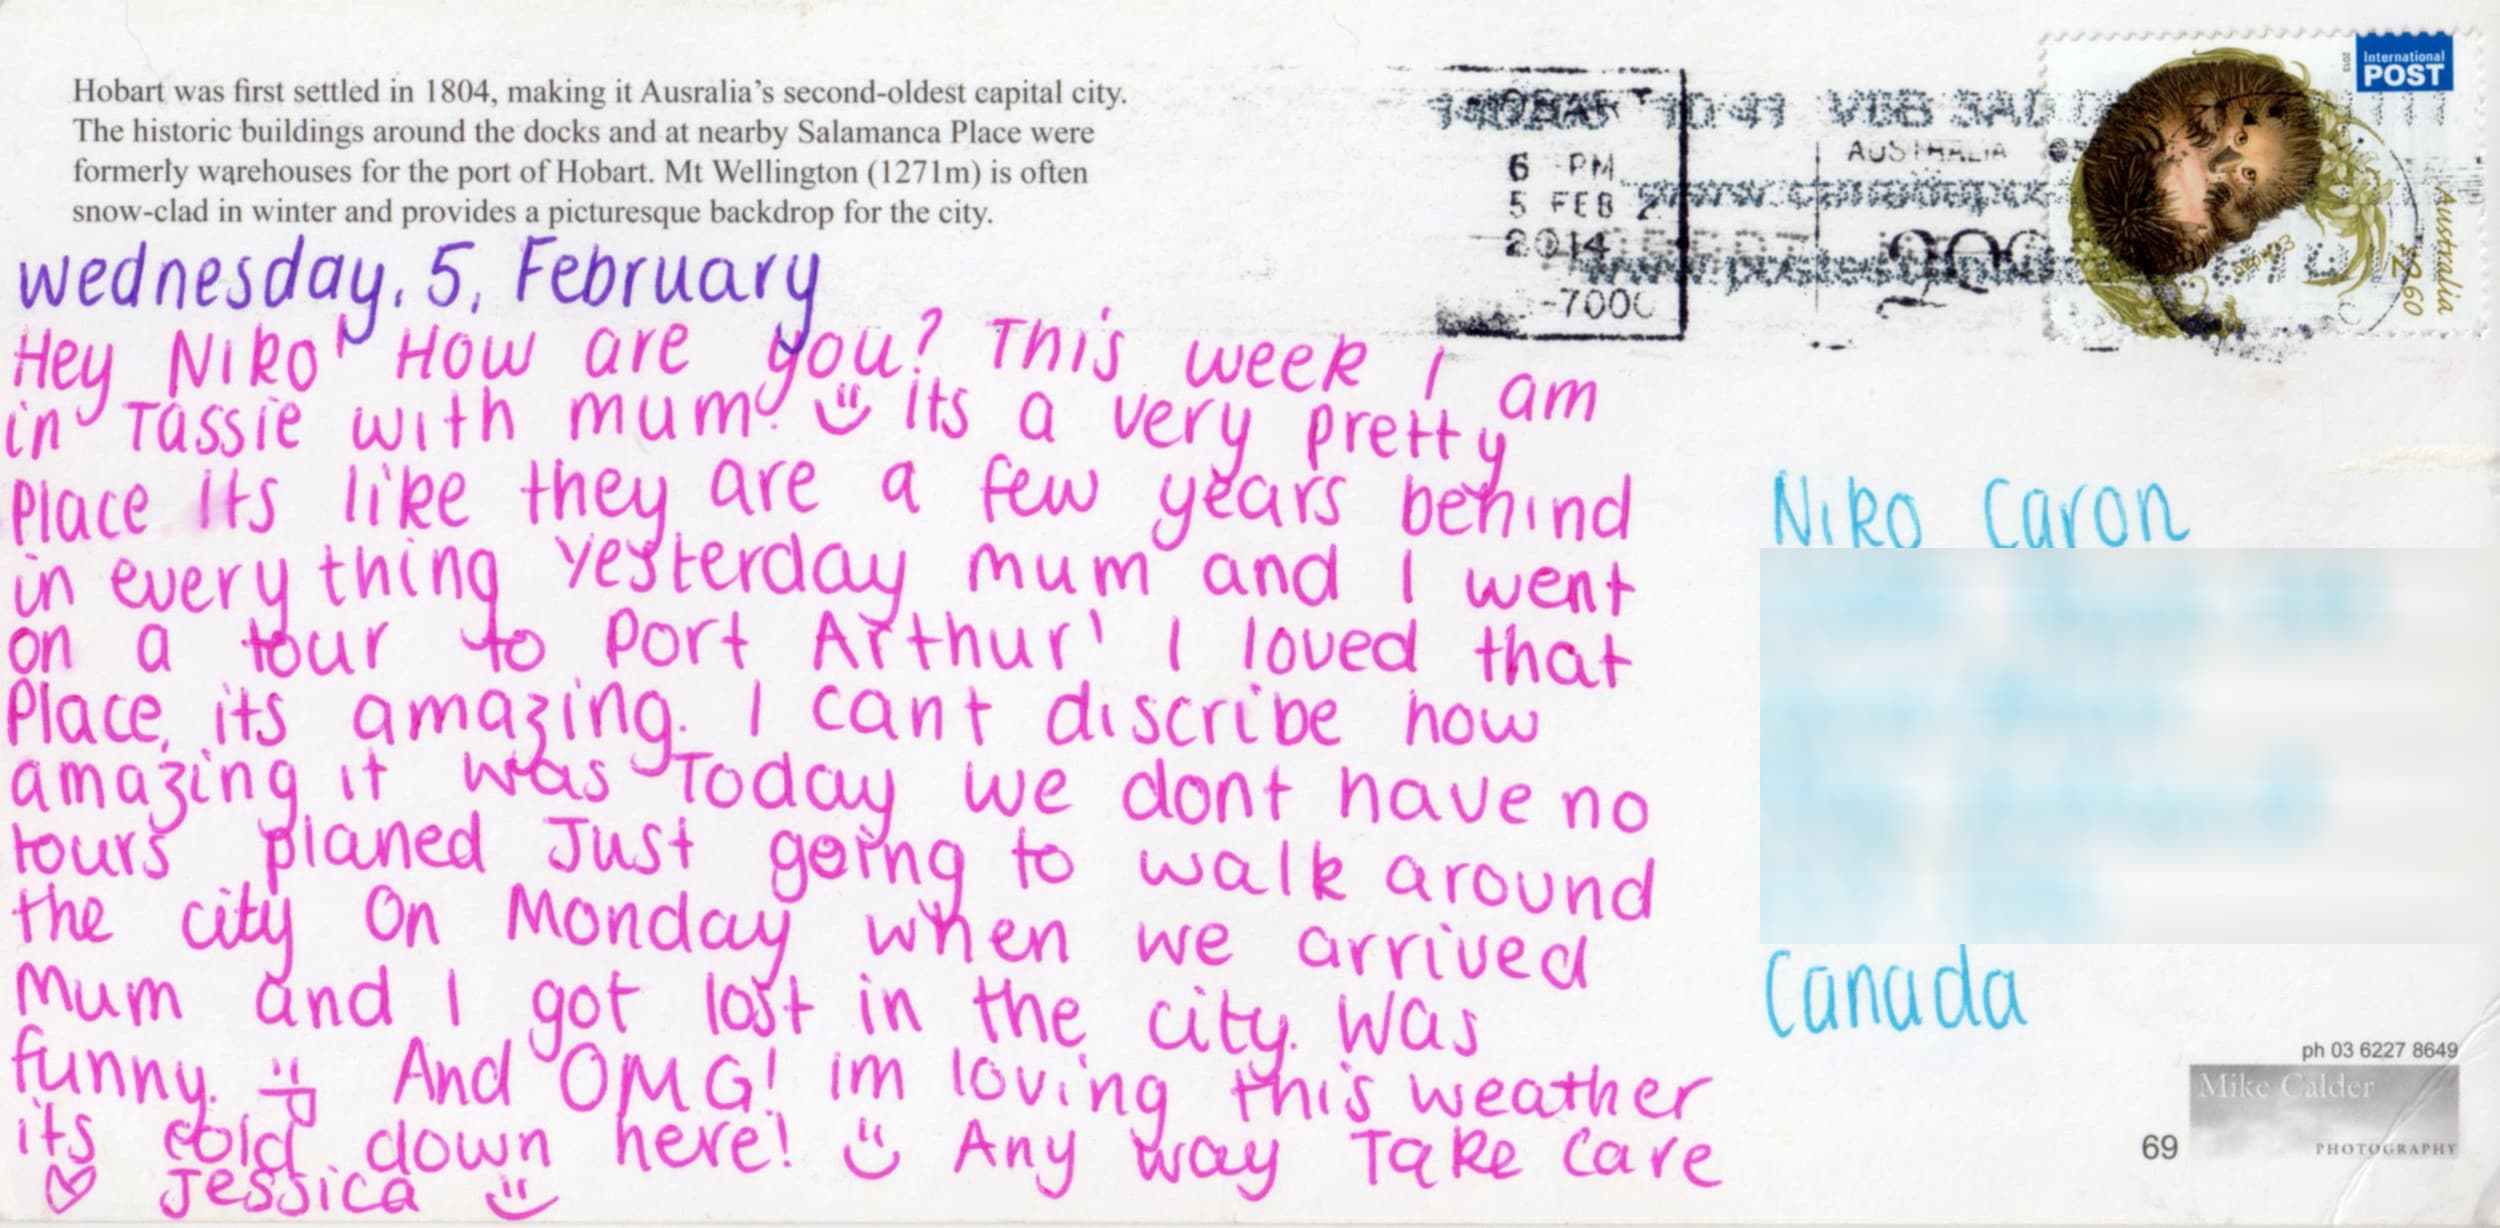 Hobart was first settled in 1804, making it Ausralia's second-oldest capital city.
The historic buildings around the docks and at nearby Salamanca Place were
formerly warehouses for the port of Hobart. Mt Wellington (1271m) is often
snow-clad in winter and provides a picturesque backdrop for the city.
wednesday, 5, February
Hey Niko! How are you? This week I am
in Tassie with mum! its a very pretty
Place its like they are a few years behind
in every thing yesterday mum and I went
on a tour to Port Arthur! I loved that
Place, its amazing. I cant discribe how
amazing it was Today we dont have no
tours planed Just going to walk around
the city On Monday when we arrived
Mum and I got lost in the city. Was
funny. And OMG! im loving this weather
its cold down here! Any way Take Care
Jessica
6 PM
5 FEB
2014
10:41
AUSTRALIA
International
POST
2013
Australia
$2.60
Niko Caron
Canada
ph 03 6227 8649
Mike Calder
PHOTOGRAPHY
69